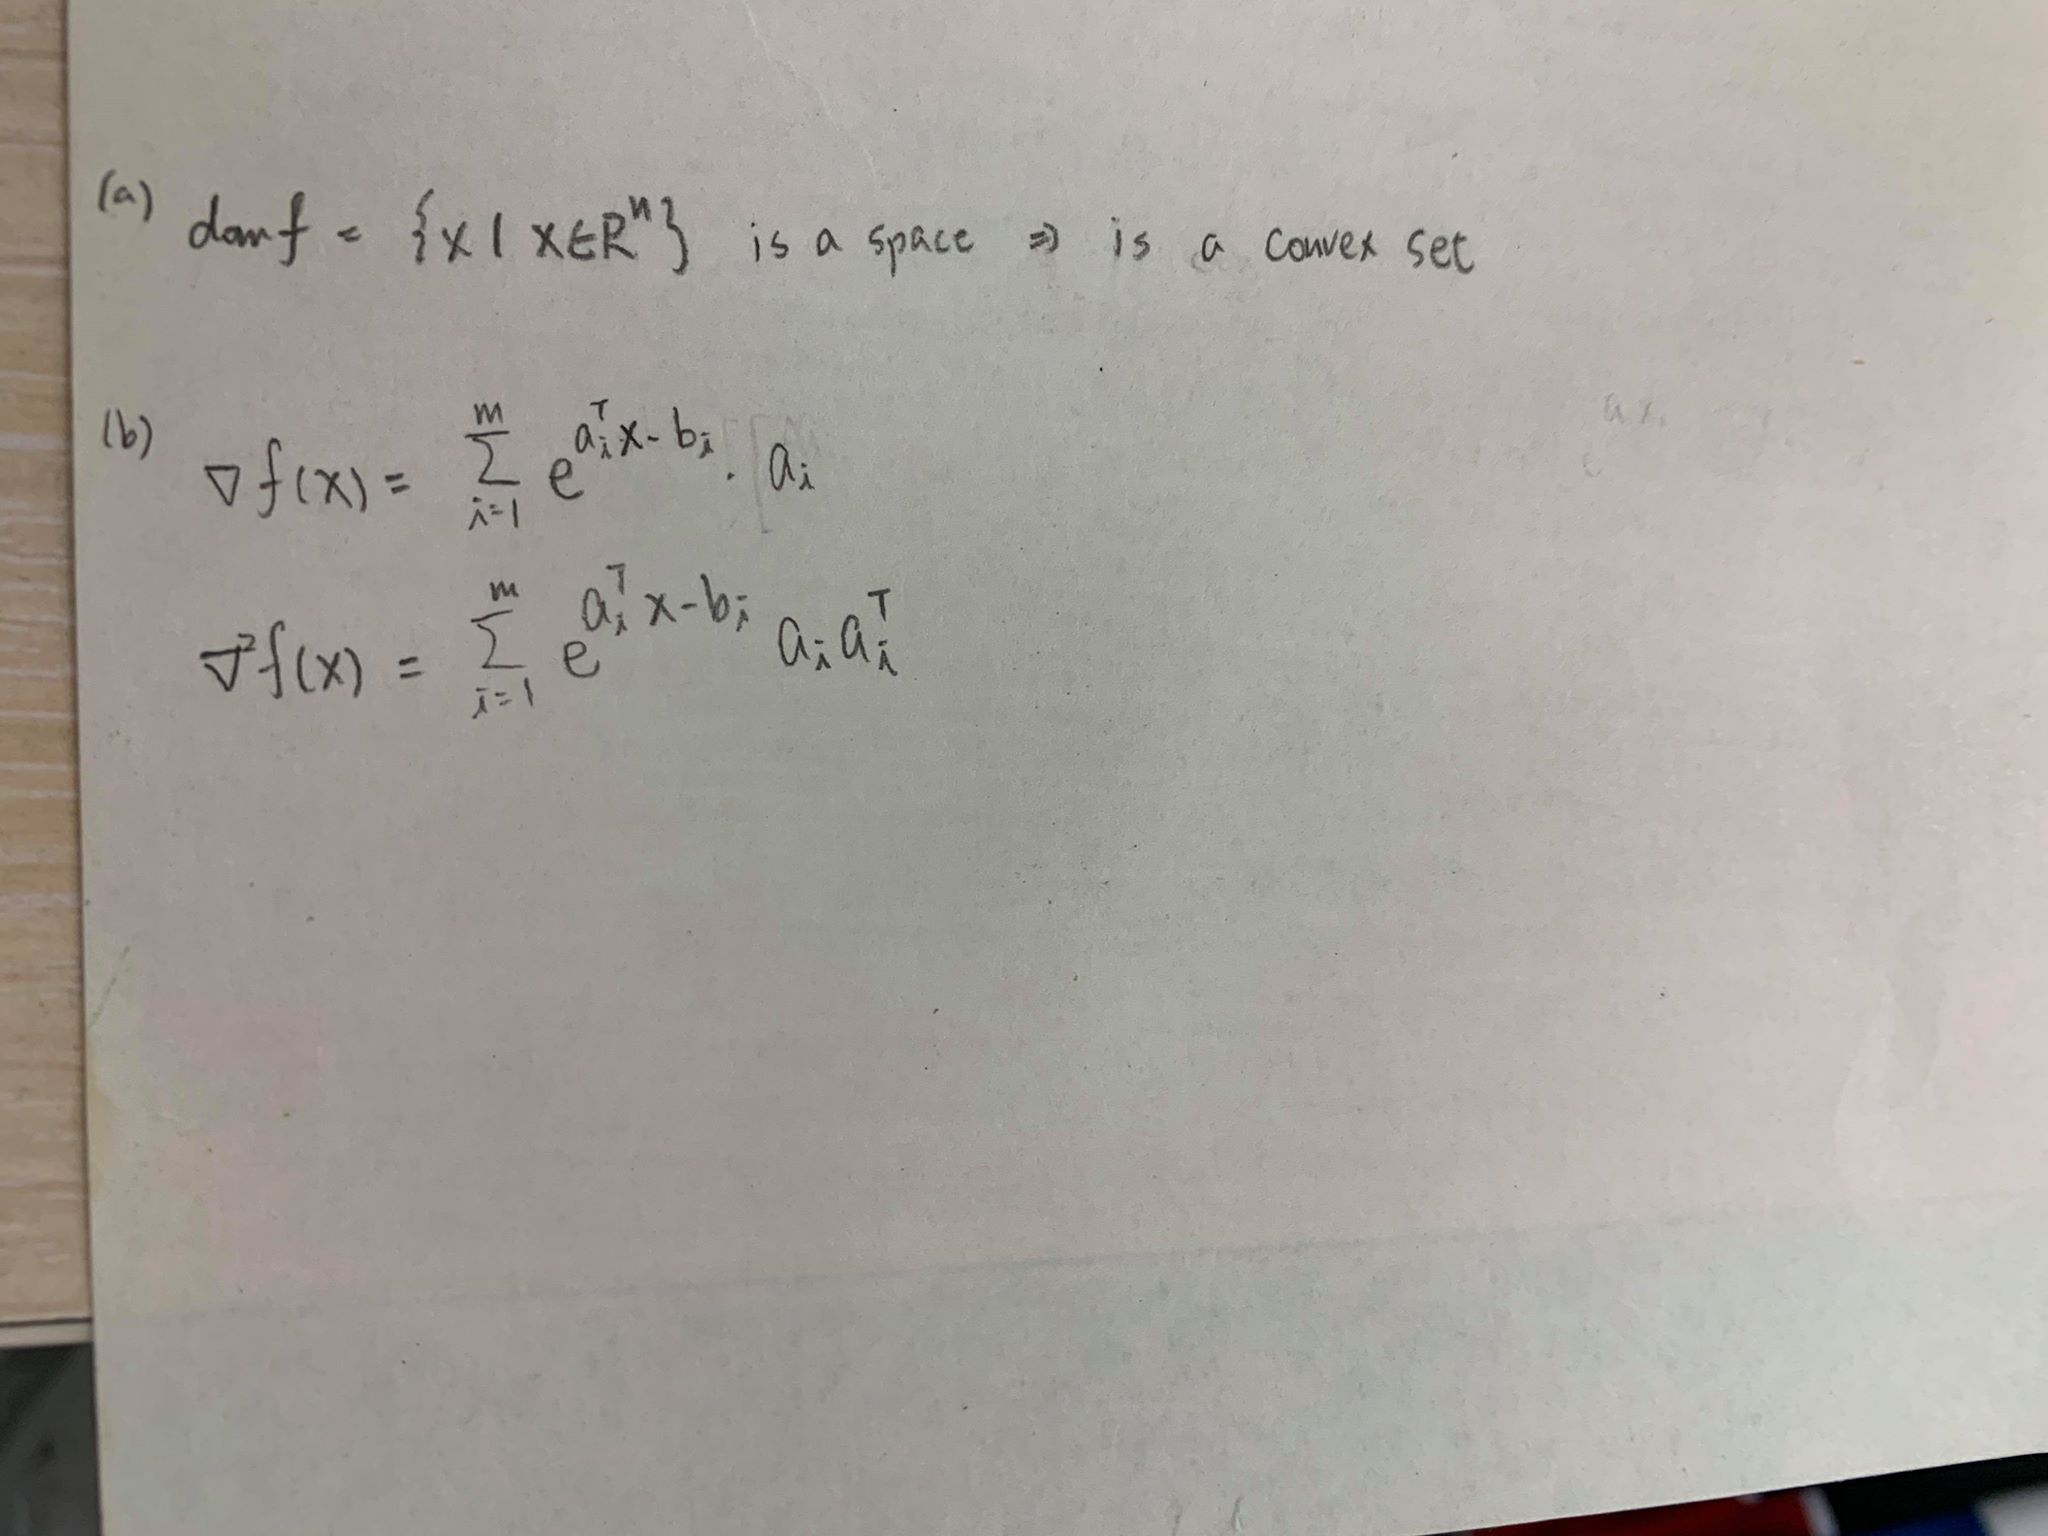 (a) dom f = {x | x∈Rⁿ} is a space ⇒ is a convex set
(b) ∇f(x) = ∑_{i=1}^{m} e^{a_i^T x - b_i} · a_i
∇²f(x) = ∑_{i=1}^{m} e^{a_i^T x - b_i} a_i a_i^T